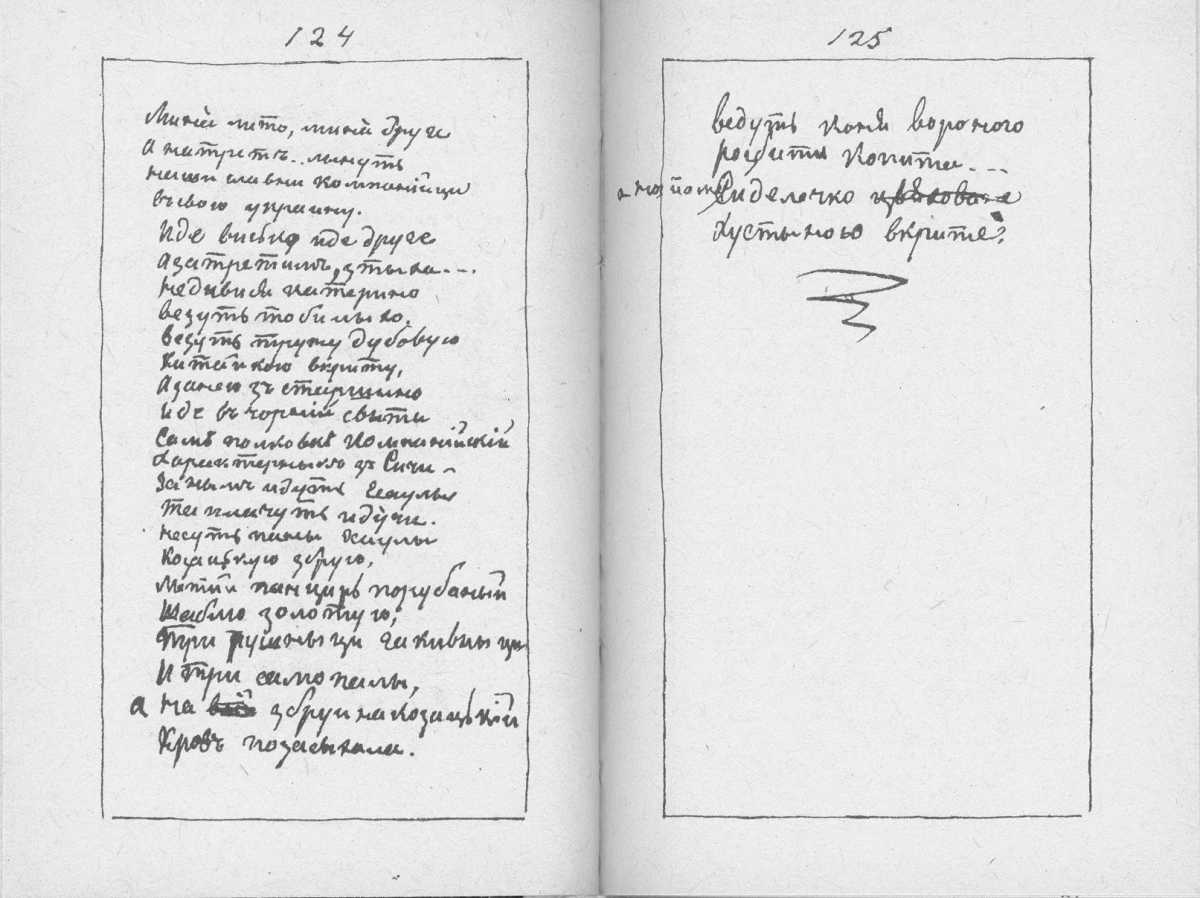 124
Минай лито, минай друге
а на третъ.. лынуть
наши славни компанійци
въ свою украину.
Иде військо иде друге
а за третимъ, з тыха---
не дивися катерино
везуть тоби лыхо.
везуть труну дубовую
Китайкою вкриту,
а за нею зъ старшиною
Иде въ чорній свыти
Самъ полковнѣ Компанійскій
Характерныкъ зъ Сичи-
За нымъ идуть Есаулы
та плачуть идучи.
несуть паны Есаулы
Козацькую збрую,
Литый панцирь порубаный
Шаблю золотую,
Три рушныци гакивныци
И три самопалы,
а на збруи на козацькій
Кровъ позасыхала.
125
ведуть коня вороного
розбити копита---
а на йому Сиделочко
Хустыною вкрите.